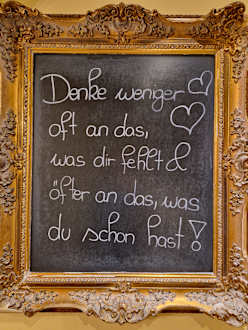 Denke weniger
oft an das,
was dir fehlt &
öfter an das, was
du schon hast!